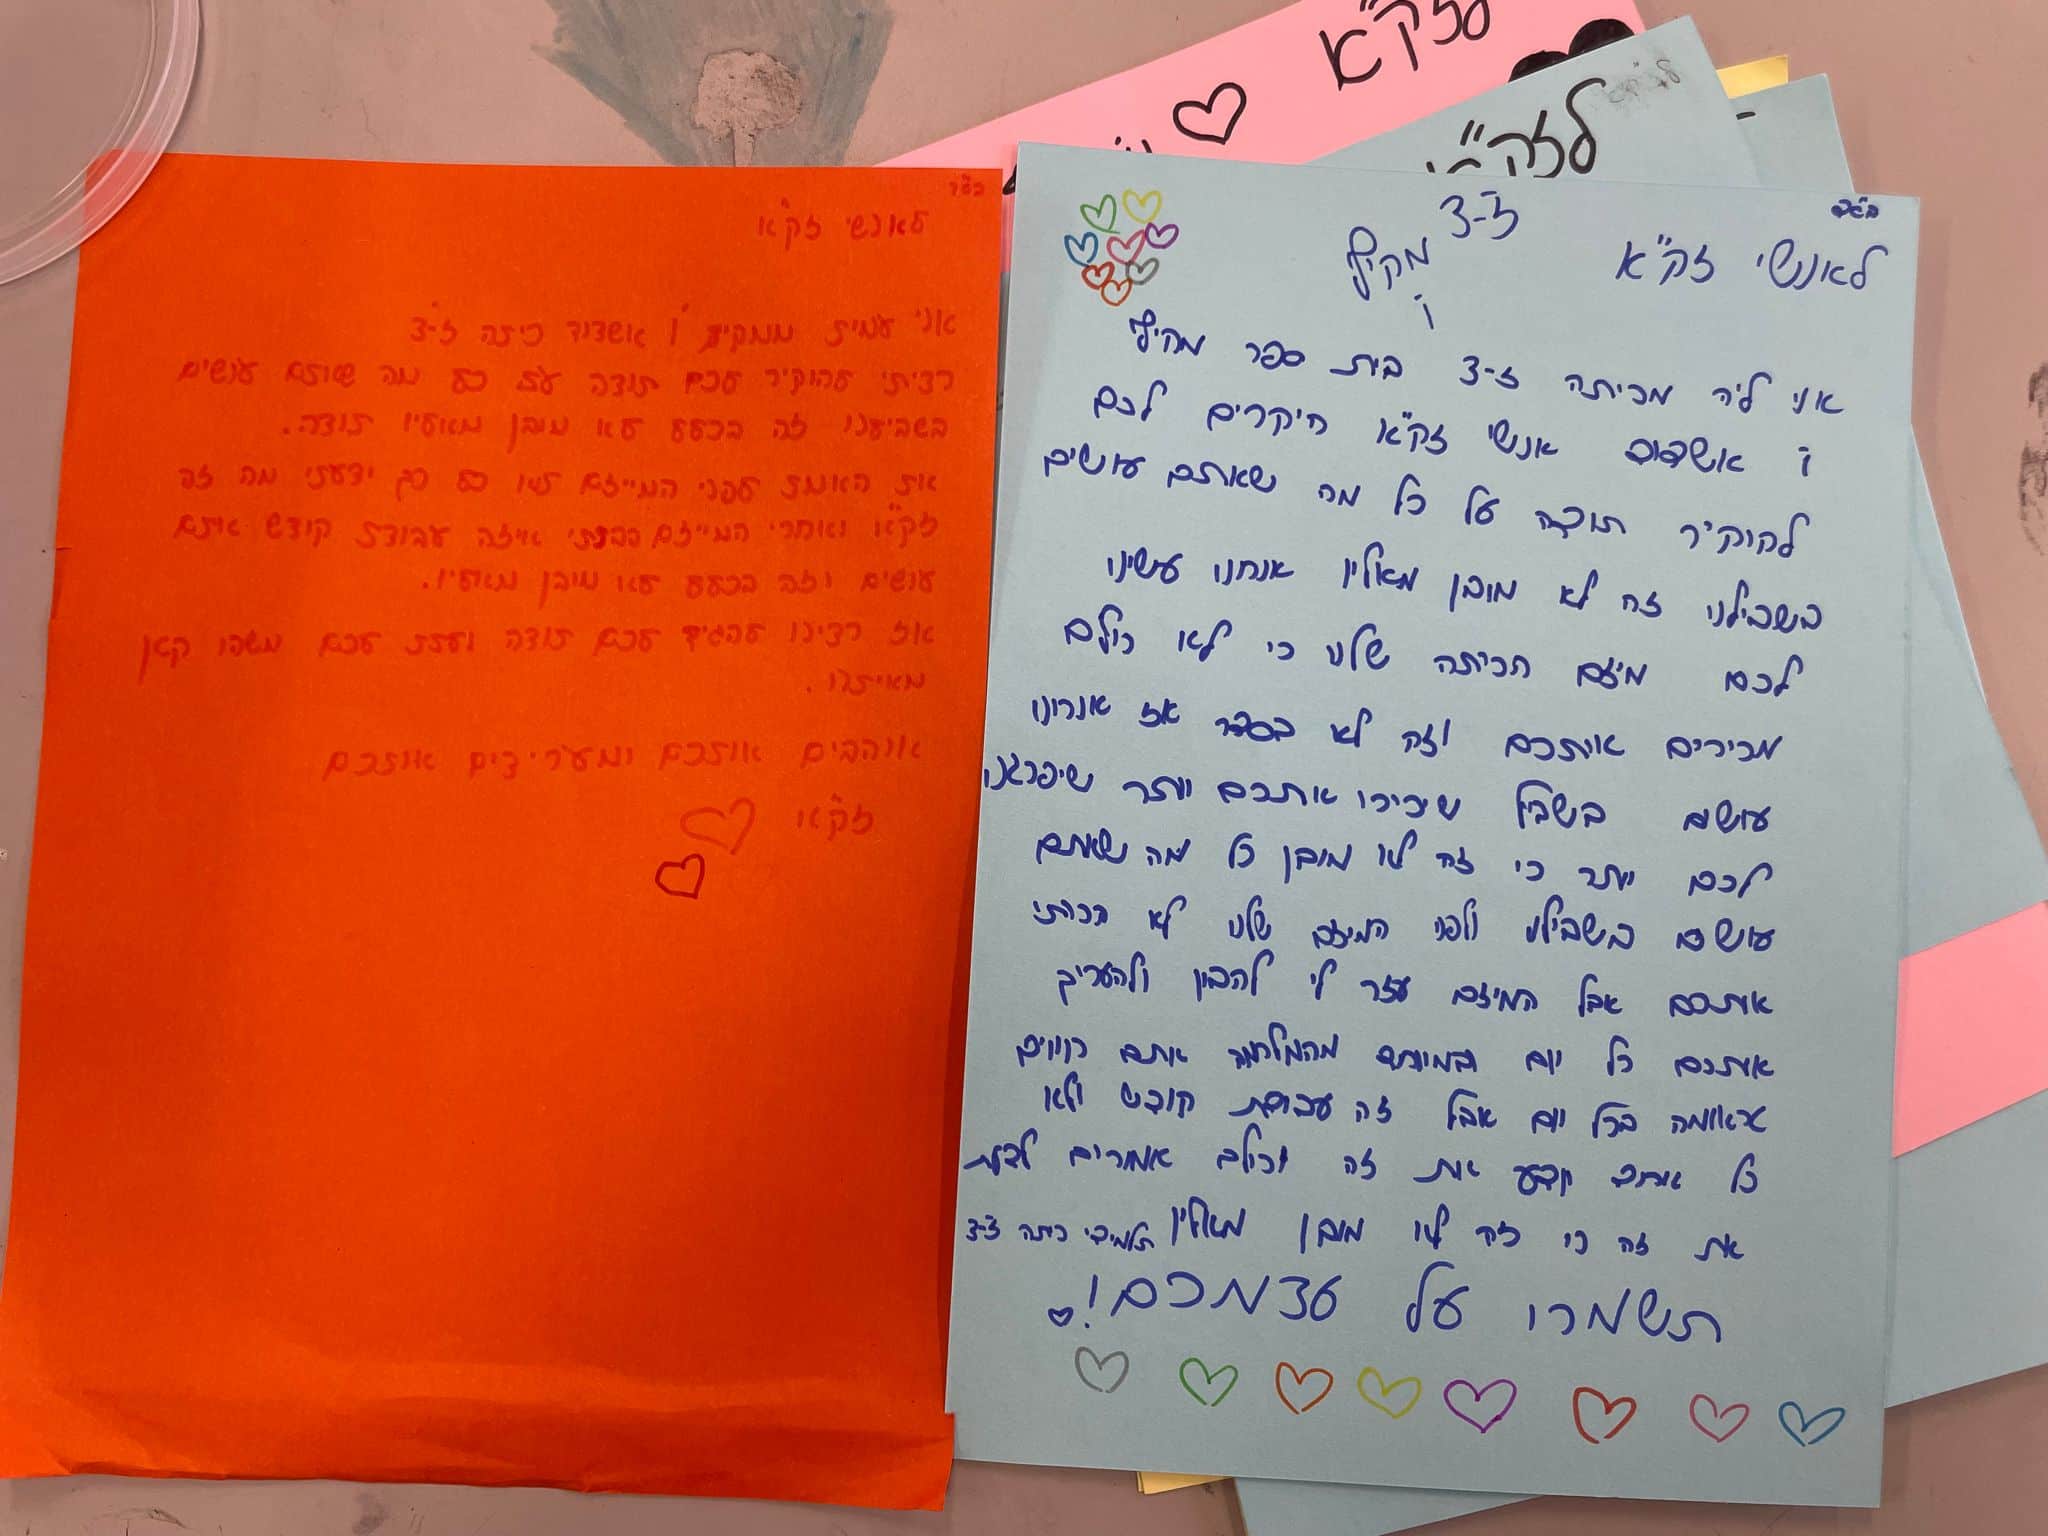 לזק"א
לזק"א
בס"ד
לאנשי זק"א
אני עמית ממקיף ו' אשדוד כיתה ז-3
רציתי להוקיר לכם תודה על כל מה שאתם עושים
בשבילנו זה בכלל לא מובן מאליו תודה.
את האמת לפני המייזם לא כל כך ידעתי מה זה
זק"א ואחרי המייזם הבנתי איזה עבודת קודש אתם
עושים וזה בכלל לא מובן מאליו.
אז רצינו להגיד לכם תודה ולתת לכם משהו קטן
מאיתנו.
אוהבים אותכם ומעריצים אותכם
זק"א
בס"ד
ז-3
לאנשי זק"א מקיף
ו'
אני ליה מכיתה ז-3 בית ספר מקיף
ו' אשדוד אנשי זק"א היקרים לכם
להוקיר תודה על כל מה שאתם עושים
בשבילנו זה לא מובן מאליו אנחנו עשינו
לכם מיזם הכיתה שלנו כי לא כולם
מכירים אותכם וזה לא בסדר אז אנחנו
עושים בשביל שיכירו אתכם יותר ושיפרגנו
לכם יותר כי זה לא מובן כל מה שאתם
עושים בשבילנו ולפני המיזם שלנו לא הכרתי
אותכם אבל המיזם עזר לי להבין ולהעריך
אותכם כל יום ובמיוחד מהמלחמה אתם חווים
טראומה בכל יום אבל זה עבודת קודש ולא
כל אחד יודע את זה וכולם אמורים לדעת
את זה כי זה לא מובן מאליו תלמידי כיתה ז-3
תשמרו על עצמכם!